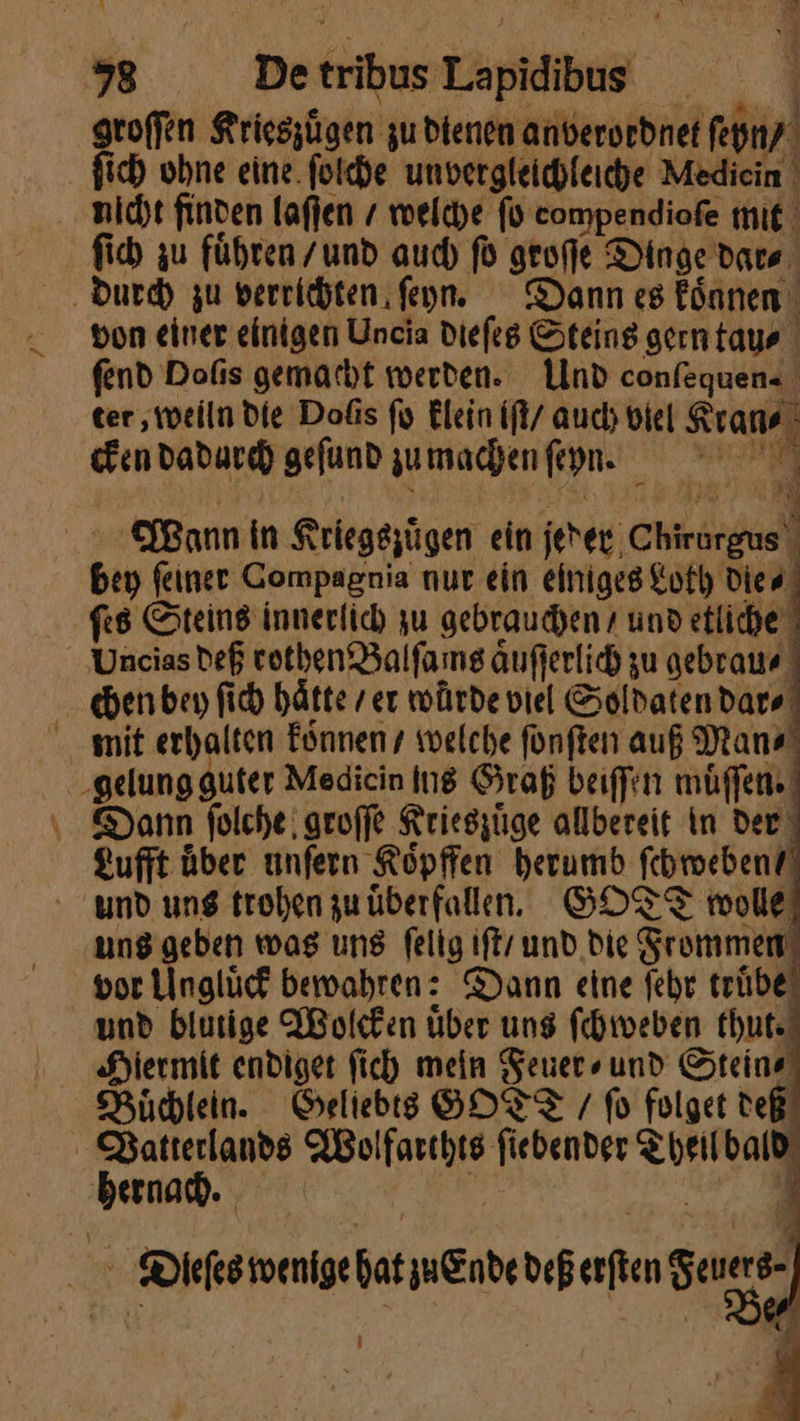 78 De tribus Lapidibus
groſſen Krieszuͤgen zu dienen anverordnet ſeyn/
ſich ohne eine ſolche unvergleichleiche Medicin
nicht finden laſſen / welche ſo compendioſe mit
ſich zu fuͤhren / und auch ſo groſſe Dinge dar⸗
durch zu verrichten ſeyn. Dann es koͤnnen
von einer einigen Uncia dieſes Steins gern tau⸗
ſend Doſis gemacht werden. Und conſequen-
ter, weiln die Doſis ſo klein iſt/ auch viel Kran⸗
cken dadurch geſund zu machen ſeyn.
Wann in Kriegszuͤgen ein jeder Chirurgus
bey ſeiner Compagnia nur ein einiges Loth die⸗
ſes Steins innerlich zu gebrauchen / und etliche
Uncias deß rothen Balſams aͤuſſerlich zu gebrau⸗
chen bey ſich haͤtte / er wuͤrde viel Soldaten dar⸗
mit erhalten koͤnnen / welche ſonſten auß Man⸗
gelung guter Medicin ins Graß beiſſen muͤſſen.
Dann ſolche groſſe Krieszuͤge allbereit in der
Lufft uͤber unſern Koͤpffen herumb ſchweben/
und uns trohen zu uͤberfallen. GOTT wolle
uns geben was uns ſelig iſt/ und die Frommen
vor Ungluͤck bewahren: Dann eine ſehr truͤbe
und blutige Wolcken uͤber uns ſchweben thut.
Hiermit endiget ſich mein Feuer⸗ und Stein⸗
Buͤchlein. Geliebts GOTT / ſo folget deß
Vatterlands Wolfarthts ſiebender Theil bald
hernach.
Dieſes wenige hat zu Ende deß erſten Feuers-
Be⸗